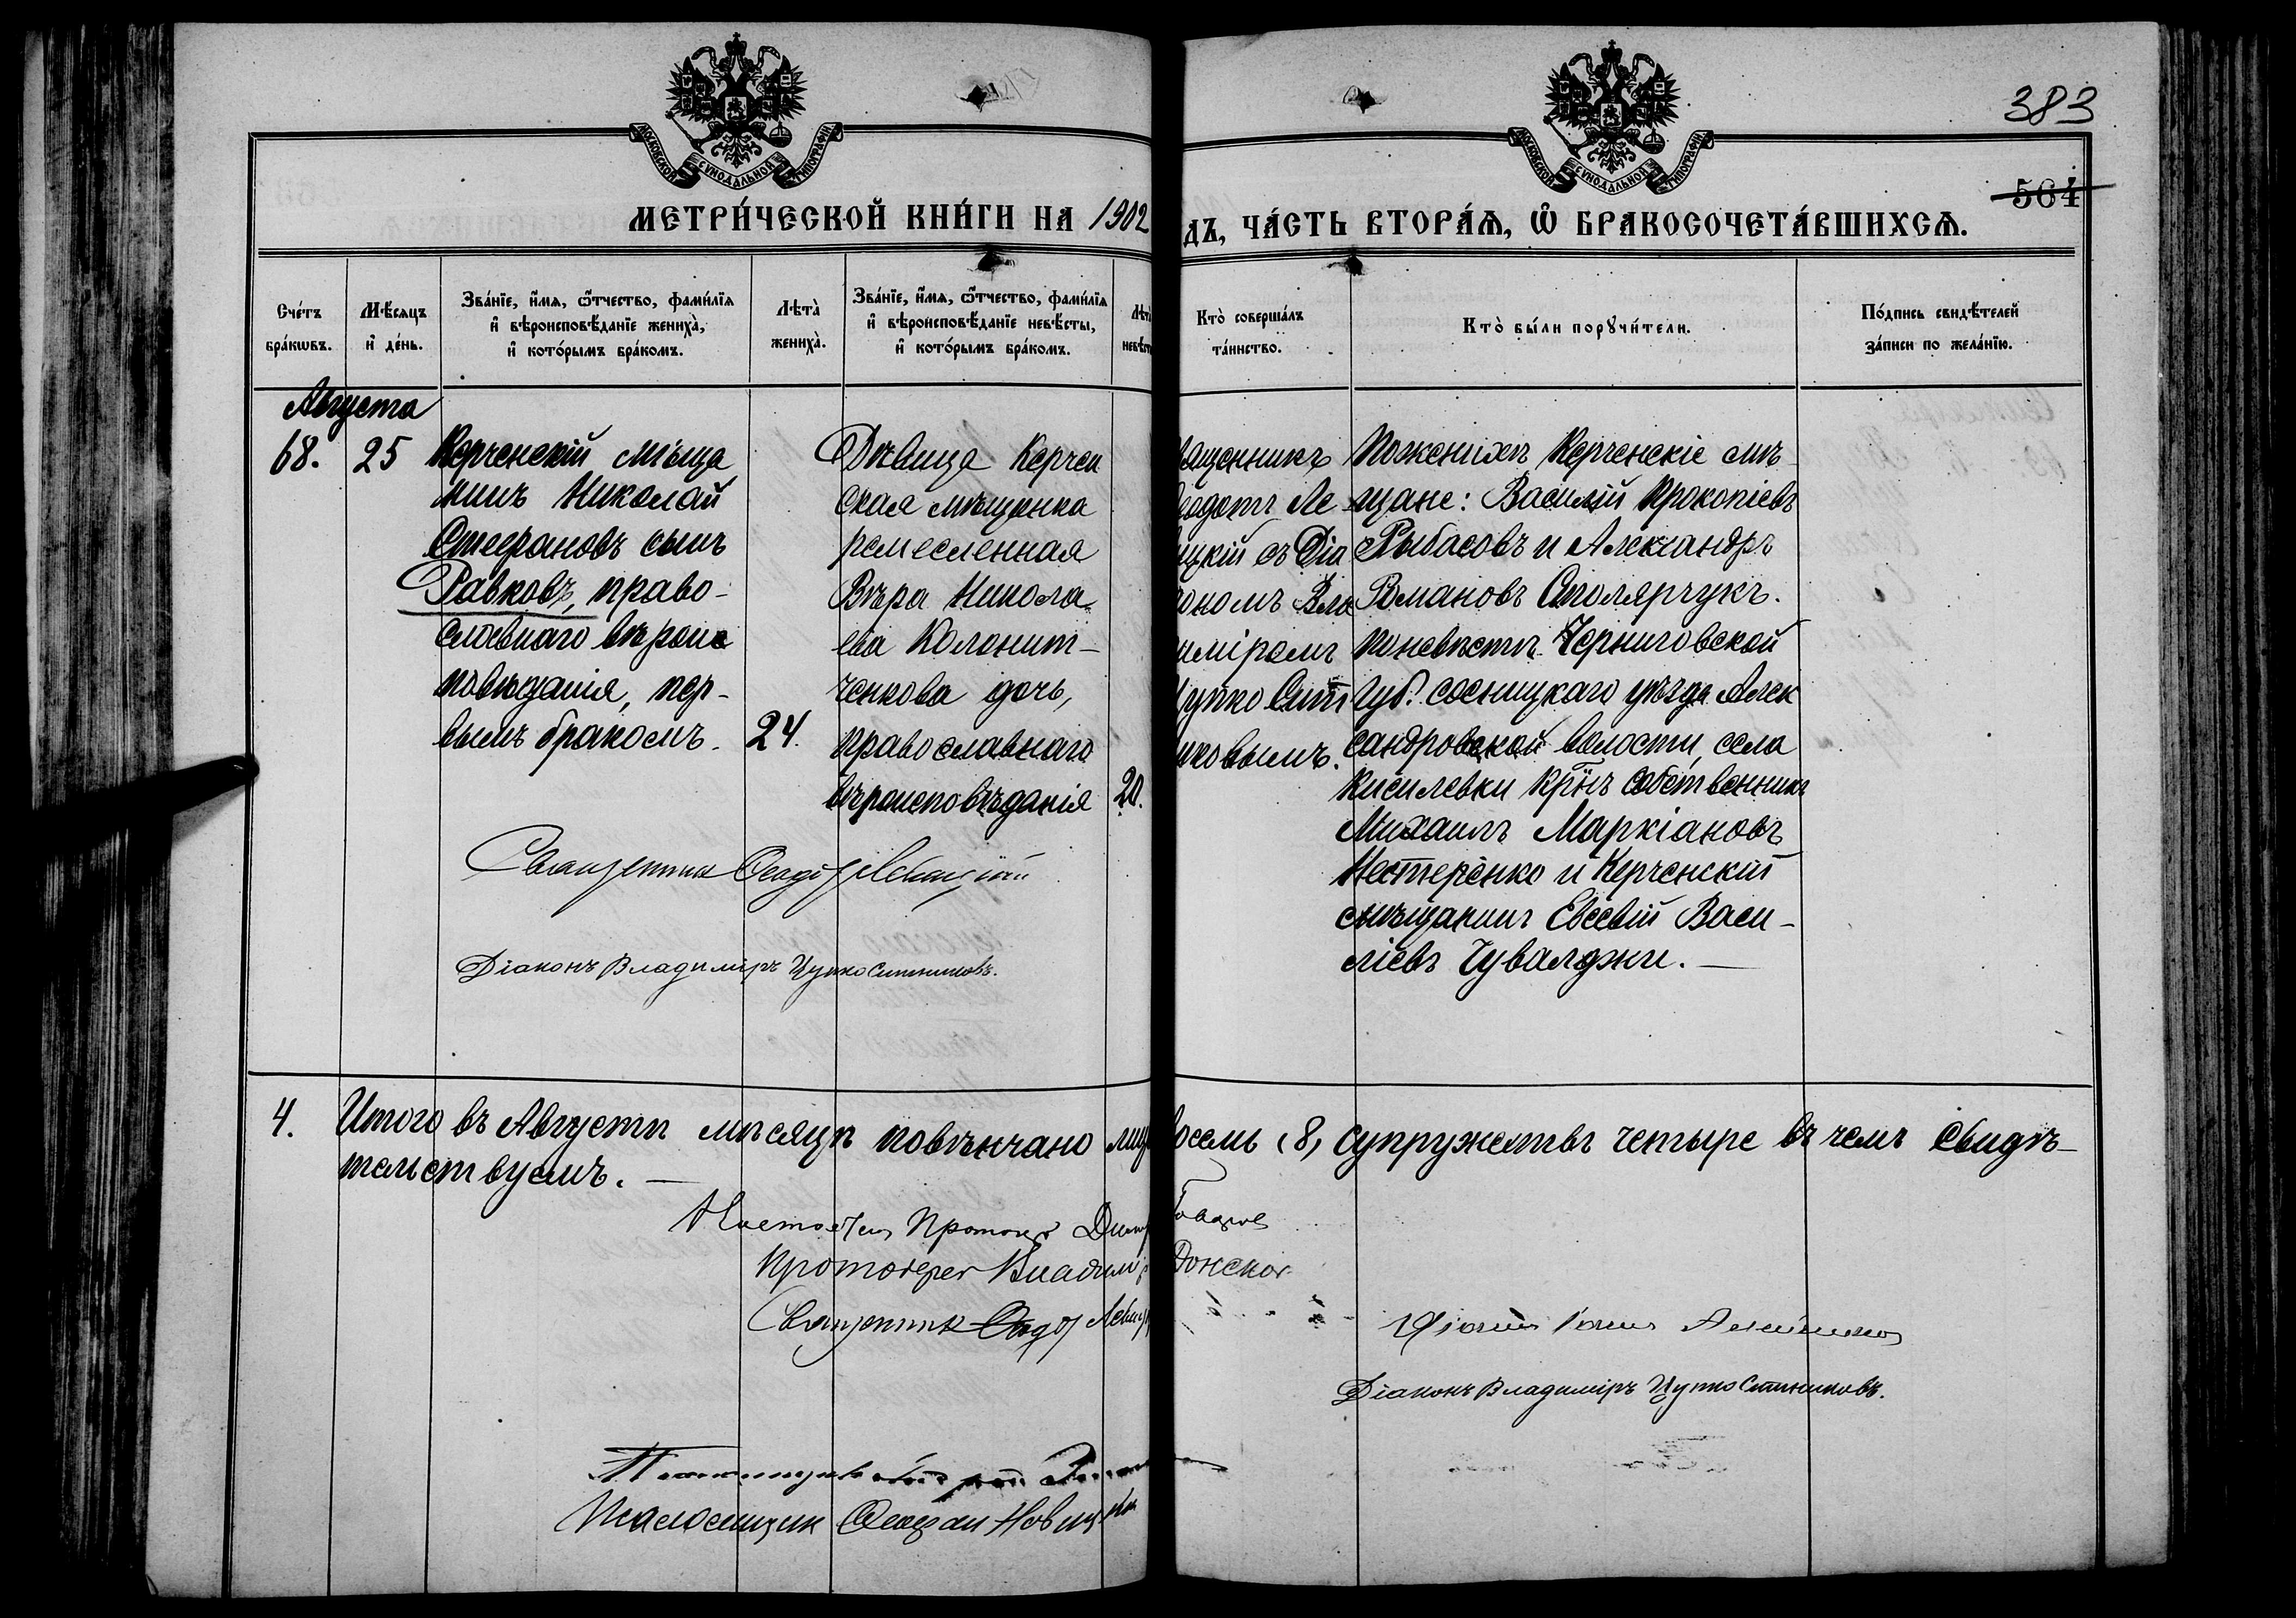 383
МОСКОВСКОЙ СѴНОДАЛЬНОЙ ТИПОГРАФІИ
МОСКОВСКОЙ СѴНОДАЛЬНОЙ ТИПОГРАФІИ
564
МЕТРИ́ЧЕСКОЙ КНИ́ГИ НА 1902
ДЪ, ЧА́СТЬ ВТОРА́Ѧ, Ѽ БРАКОСОЧЕТА́ВШИХСѦ.
Сче́тъ бра́кωвъ.
Мѣ́сѧцъ и҆ де́нь.
Зва́нїе, и҆́мѧ, ѻ҆́тчество, фами́лїѧ и҆ вѣроисповѣ́данїе жениха̀, и҆ кото́рымъ бра́комъ.
Лѣта̀ жениха̀.
Зва́нїе, и҆́мѧ, ѻ҆́тчество, фами́лїѧ и҆ вѣроисповѣ́данїе невѣ́сты, и҆ кото́рымъ бра́комъ.
Кто̀ соверша́лъ та́инство.
Кто̀ бы́ли порꙋчи́тели.
По́дпись свидѣ́телей за́писи по жела́нїю.
Августа
68.
25
Керченскій мѣща
нинъ Николай
Стефановъ сынъ
Равковъ, право-
славнаго вѣроис
повѣданія, пер-
вымъ бракомъ.
24.
Дѣвица Керчен
ская мѣщанка
ремесленная
Вѣра Никола
ева Коломит-
ченкова дочь,
православнаго
вѣроисповѣданія
20.
ященникъ
еодотъ Ле
ицкій съ Діа
ономъ Вла
иміромъ
Цупко Сит
никовымъ.
По женихѣ Керченскіе мѣ-
щане: Василій Прокопіевъ
Рыбасовъ и Александръ
Романовъ Столярчукъ.
по невѣстѣ Черниговской
губ. Сосницкаго уѣзда Алек
сандровской волости, села
Киселевки крнъ собственникъ
Михаилъ Маркіановъ
Нестеренко и Керченскій
мѣщанинъ Евсевій Васи-
ліевъ Чувалджи.
Священникъ Ѳеодотъ
Діаконъ Владиміръ Цупко Ситниковъ.
4.
Итого въ Августѣ мѣсяцѣ повѣнчано лиц восемь (8) супружествъ четыре въ чемъ свидѣ-
тельствуемъ.
Протоіерей Владимір Донской
Священникъ
Діаконъ Владиміръ Цупко Ситниковъ.
Псаломщикъ Новицкій